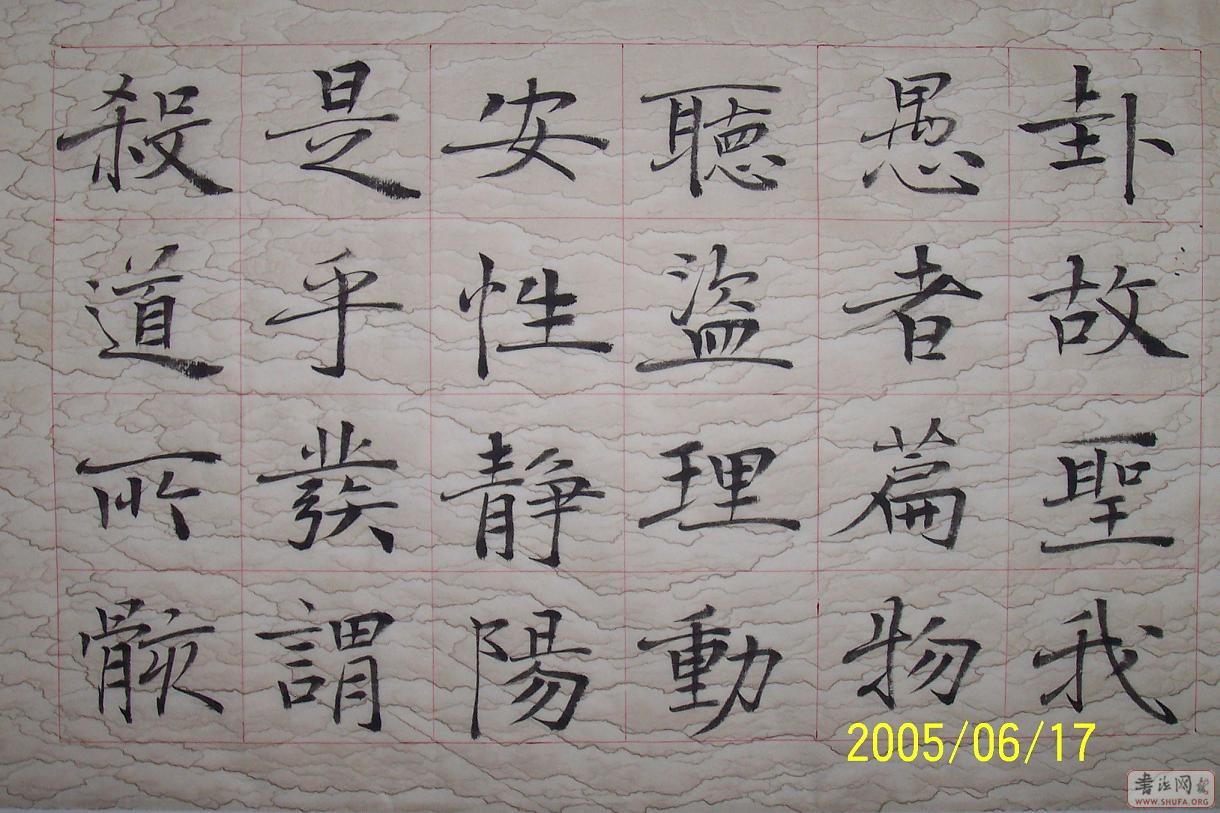 卦故聖我
愚者篇物
聽盜理動
安性靜陽
是乎發謂
殺道所骸
2005/06/17
書法网
WWW.SHUFA.ORG